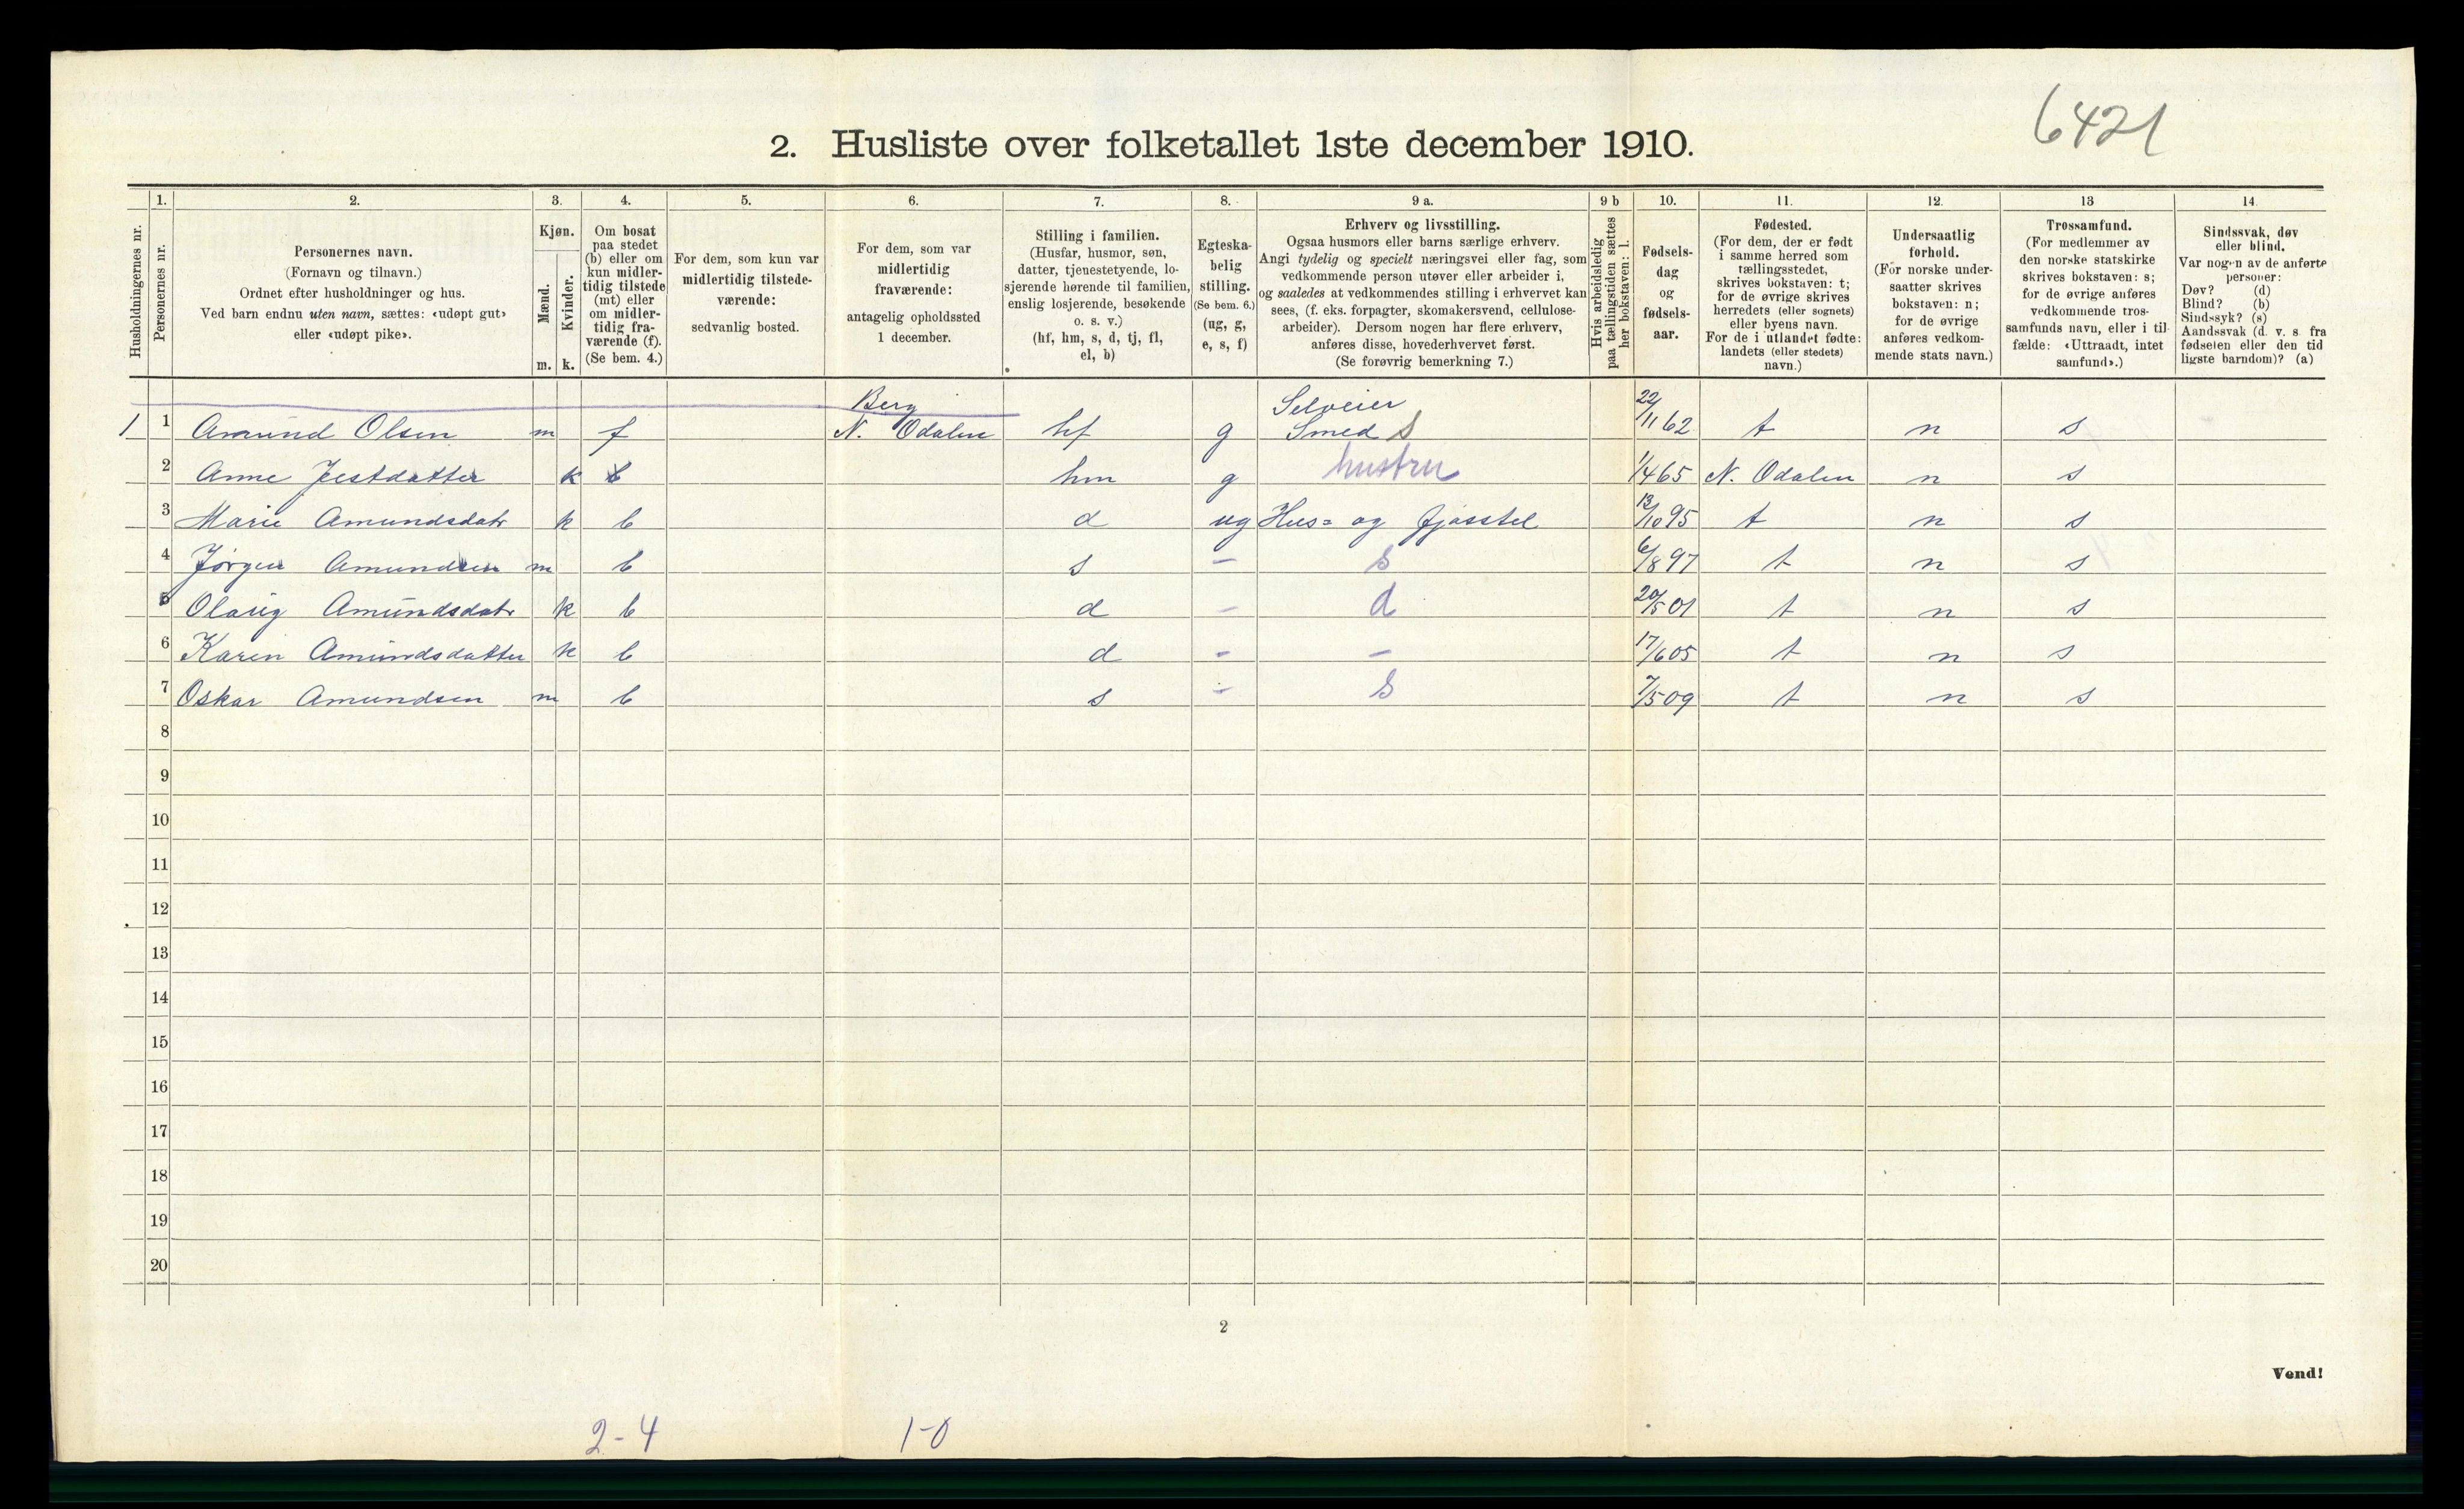 6421
2. Husliste over folketallet 1ste december 1910.
Husholdningernes nr.
1.
Personernes nr.
2.
Personernes navn.
(Fornavn og tilnavn.)
Ordnet efter husholdninger og hus.
Ved barn endnu uten navn, sættes: «udøpt gut»
eller «udøpt pike».
3.
Kjøn.
Mænd.
Kvinder.
m. k.
4.
Om bosat
paa stedet
(b) eller om
kun midler-
tidig tilstede
(mt) eller
om midler-
tidig fra-
værende (f).
(Se bem. 4.)
5.
For dem, som kun var
midlertidig tilstede-
værende:
sedvanlig bosted.
6.
For dem, som var
midlertidig
fraværende:
antagelig opholdssted
1 december.
7.
Stilling i familien.
(Husfar, husmor, søn,
datter, tjenestetyende, lo-
sjerende hørende til familien,
enslig losjerende, besøkende
o. s. v.)
(hf, hm, s, d, tj, fl,
el, b)
8.
Egteska-
belig
stilling.
(Se bem. 6.)
(ug, g,
e, s, f)
9 a.
Erhverv og livsstilling.
Ogsaa husmors eller barns særlige erhverv.
Angi tydelig og specielt næringsvei eller fag, som
vedkommende person utøver eller arbeider i,
og saaledes at vedkommendes stilling i erhvervet kan
sees, (f. eks. forpagter, skomakersvend, cellulose-
arbeider). Dersom nogen har flere erhverv,
anføres disse, hovederhvervet først.
(Se forøvrig bemerkning 7.)
9 b
Hvis arbeidsledig
paa tællingstiden sættes
her bokstaven: l.
10.
Fødsels-
dag
og
fødsels-
aar.
11.
Fødested.
(For dem, der er født
i samme herred som
tællingsstedet,
skrives bokstaven: t;
for de øvrige skrives
herredets (eller sognets)
eller byens navn.
For de i utlandet fødte:
landets (eller stedets)
navn.)
12.
Undersaatlig
forhold.
(For norske under-
saatter skrives
bokstaven: n;
for de øvrige
anføres vedkom-
mende stats navn.)
13
Trossamfund.
(For medlemmer av
den norske statskirke
skrives bokstaven: s;
for de øvrige anføres
vedkommende tros-
samfunds navn, eller i til-
fælde: «Uttraadt, intet
samfund».)
14.
Sindssvak, døv
eller blind.
Var nogen av de anførte
personer:
Døv? (d)
Blind? (b)
Sindssyk? (s)
Aandssvak (d. v. s. fra
fødselen eller den tid
ligste barndom)? (a)
Berg Selveier
1 1 Amund Olsen m f N. Odalen hf g Smed S 22/11 62 t n s
2 Anne Jestdatter k b hm g hustru 1/4 65 N. Odalen n s
3 Marie Amundsdatr k b d ug Hus= og fjøsstel 13/10 95 t n s
4 Jørgen Amundsen m b s - s 6/8 97 t n s
5 Olaug Amundsdatr k b d - d 20/5 01 t n s
6 Karen Amundsdatter k b d - - 17/6 05 t n s
7 Oskar Amundsen m b s - s 7/5 09 t n s
8
9
10
11
12
13
14
15
16
17
18
19
20
2
Vend!
2-4 1-0